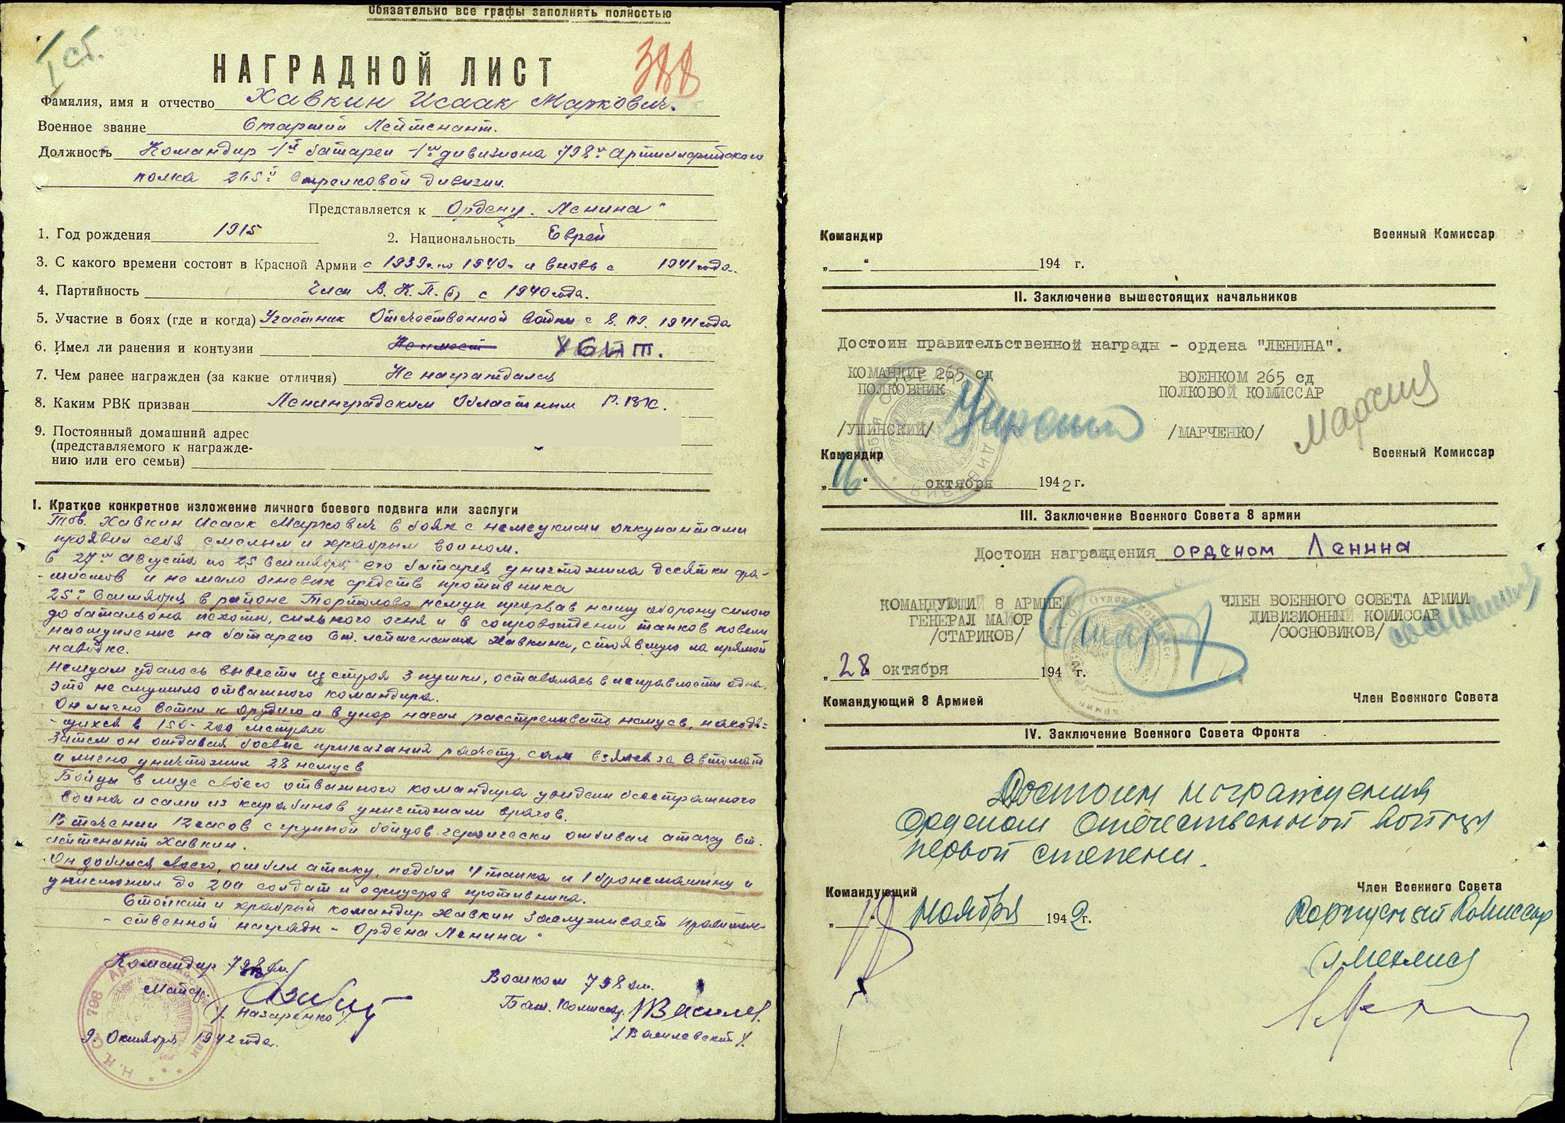 Обязательно все графы заполнять полностью
I сб.
388
НАГРАДНОЙ ЛИСТ
Фамилия, имя и отчество Хавкин Исаак Маркович.
Военное звание Старший Лейтенант.
Должность Командир 1й батареи 1го дивизиона 798го Артиллерийского
полка 265й Стрелковой дивизии.
Представляется к Ордену "Ленина"
1. Год рождения 1915 2. Национальность Еврей
3. С какого времени состоит в Красной Армии с 1939г. по 1940г и вновь с 1941 года.
4. Партийность Член В.К.П.(б) с 1940 года.
5. Участие в боях (где и когда) Участник Отечественной войны с 1941 года
6. Имел ли ранения и контузии Не имеет УБИТ.
7. Чем ранее награжден (за какие отличия) Не награждался
8. Каким РВК призван Ленинградским Областным Р.В.К.
9. Постоянный домашний адрес
(представляемого к награжде-
нию или его семьи)
I. Краткое конкретное изложение личного боевого подвига или заслуги
Тов. Хавкин Исаак Маркович в боях с немецкими оккупантами
проявил себя смелым и храбрым воином.
С 27го августа по 25 Сентября его батарея уничтожила десятки фа-
-шистов и не мало огневых средств противника
25го Сентября в районе Тортолово немцы прорвав нашу оборону силою
до батальона пехоты, сильного огня и в сопровождении танков повели
наступление на батарею Ст. лейтенанта Хавкина, стоявшую на прямой
наводке.
Немцам удалось вывести из строя 3 пушки, оставалась в исправности одна.
Это не смутило отважного командира.
Он лично встал к орудию и в упор начал расстреливать немцев, находя-
-щихся в 150-200 метрах
Затем он отдавая боевые приказания расчету, сам взялся за автомат
и лично уничтожил 28 немцев
Бойцы в лице своего отважного командира увидели бесстрашного
воина и сами из карабинов уничтожали врагов.
В течении 12 часов с группой бойцов героически отбивал атаку Ст.
лейтенант Хавкин.
Он добился своего, отбил атаку, подбил 4 танка и 1 бронемашину и
уничтожил до 200 солдат и офицеров противника.
Стойкий и храбрый командир Хавкин заслуживает правитель-
-ственной награды - Ордена "Ленина"
Командир 798 ап.
Майор
/ Назаренко /
9. Октября 1942 года.
Военком 798 ап.
Бат. Комиссар
/ Василевский /
Командир Военный Комиссар
„ “ 194 г.
II. Заключение вышестоящих начальников
Достоин правительственной награды - ордена "ЛЕНИНА".
КОМАНДИР 265 сд ВОЕНКОМ 265 сд
ПОЛКОВНИК ПОЛКОВОЙ КОМИССАР
/УШИНСКИЙ/ /МАРЧЕНКО/
Командир Военный Комиссар
„16“ октября 1942 г.
III. Заключение Военного Совета 8 армии
Достоин награждения орденом Ленина
КОМАНДУЮЩИЙ 8 АРМИЕЙ ЧЛЕН ВОЕННОГО СОВЕТА АРМИИ
ГЕНЕРАЛ МАЙОР ДИВИЗИОННЫЙ КОМИССАР
/СТАРИКОВ/ /СОСНОВИКОВ/
„28 октября 194 г.
Командующий 8 Армией Член Военного Совета
IV. Заключение Военного Совета Фронта
Достоин награждения
Орденом Отечественной войны
первой степени.
Командующий Член Военного Совета
„ “ Ноября 1942 г. Корпусной Комиссар
Л. Мехлис